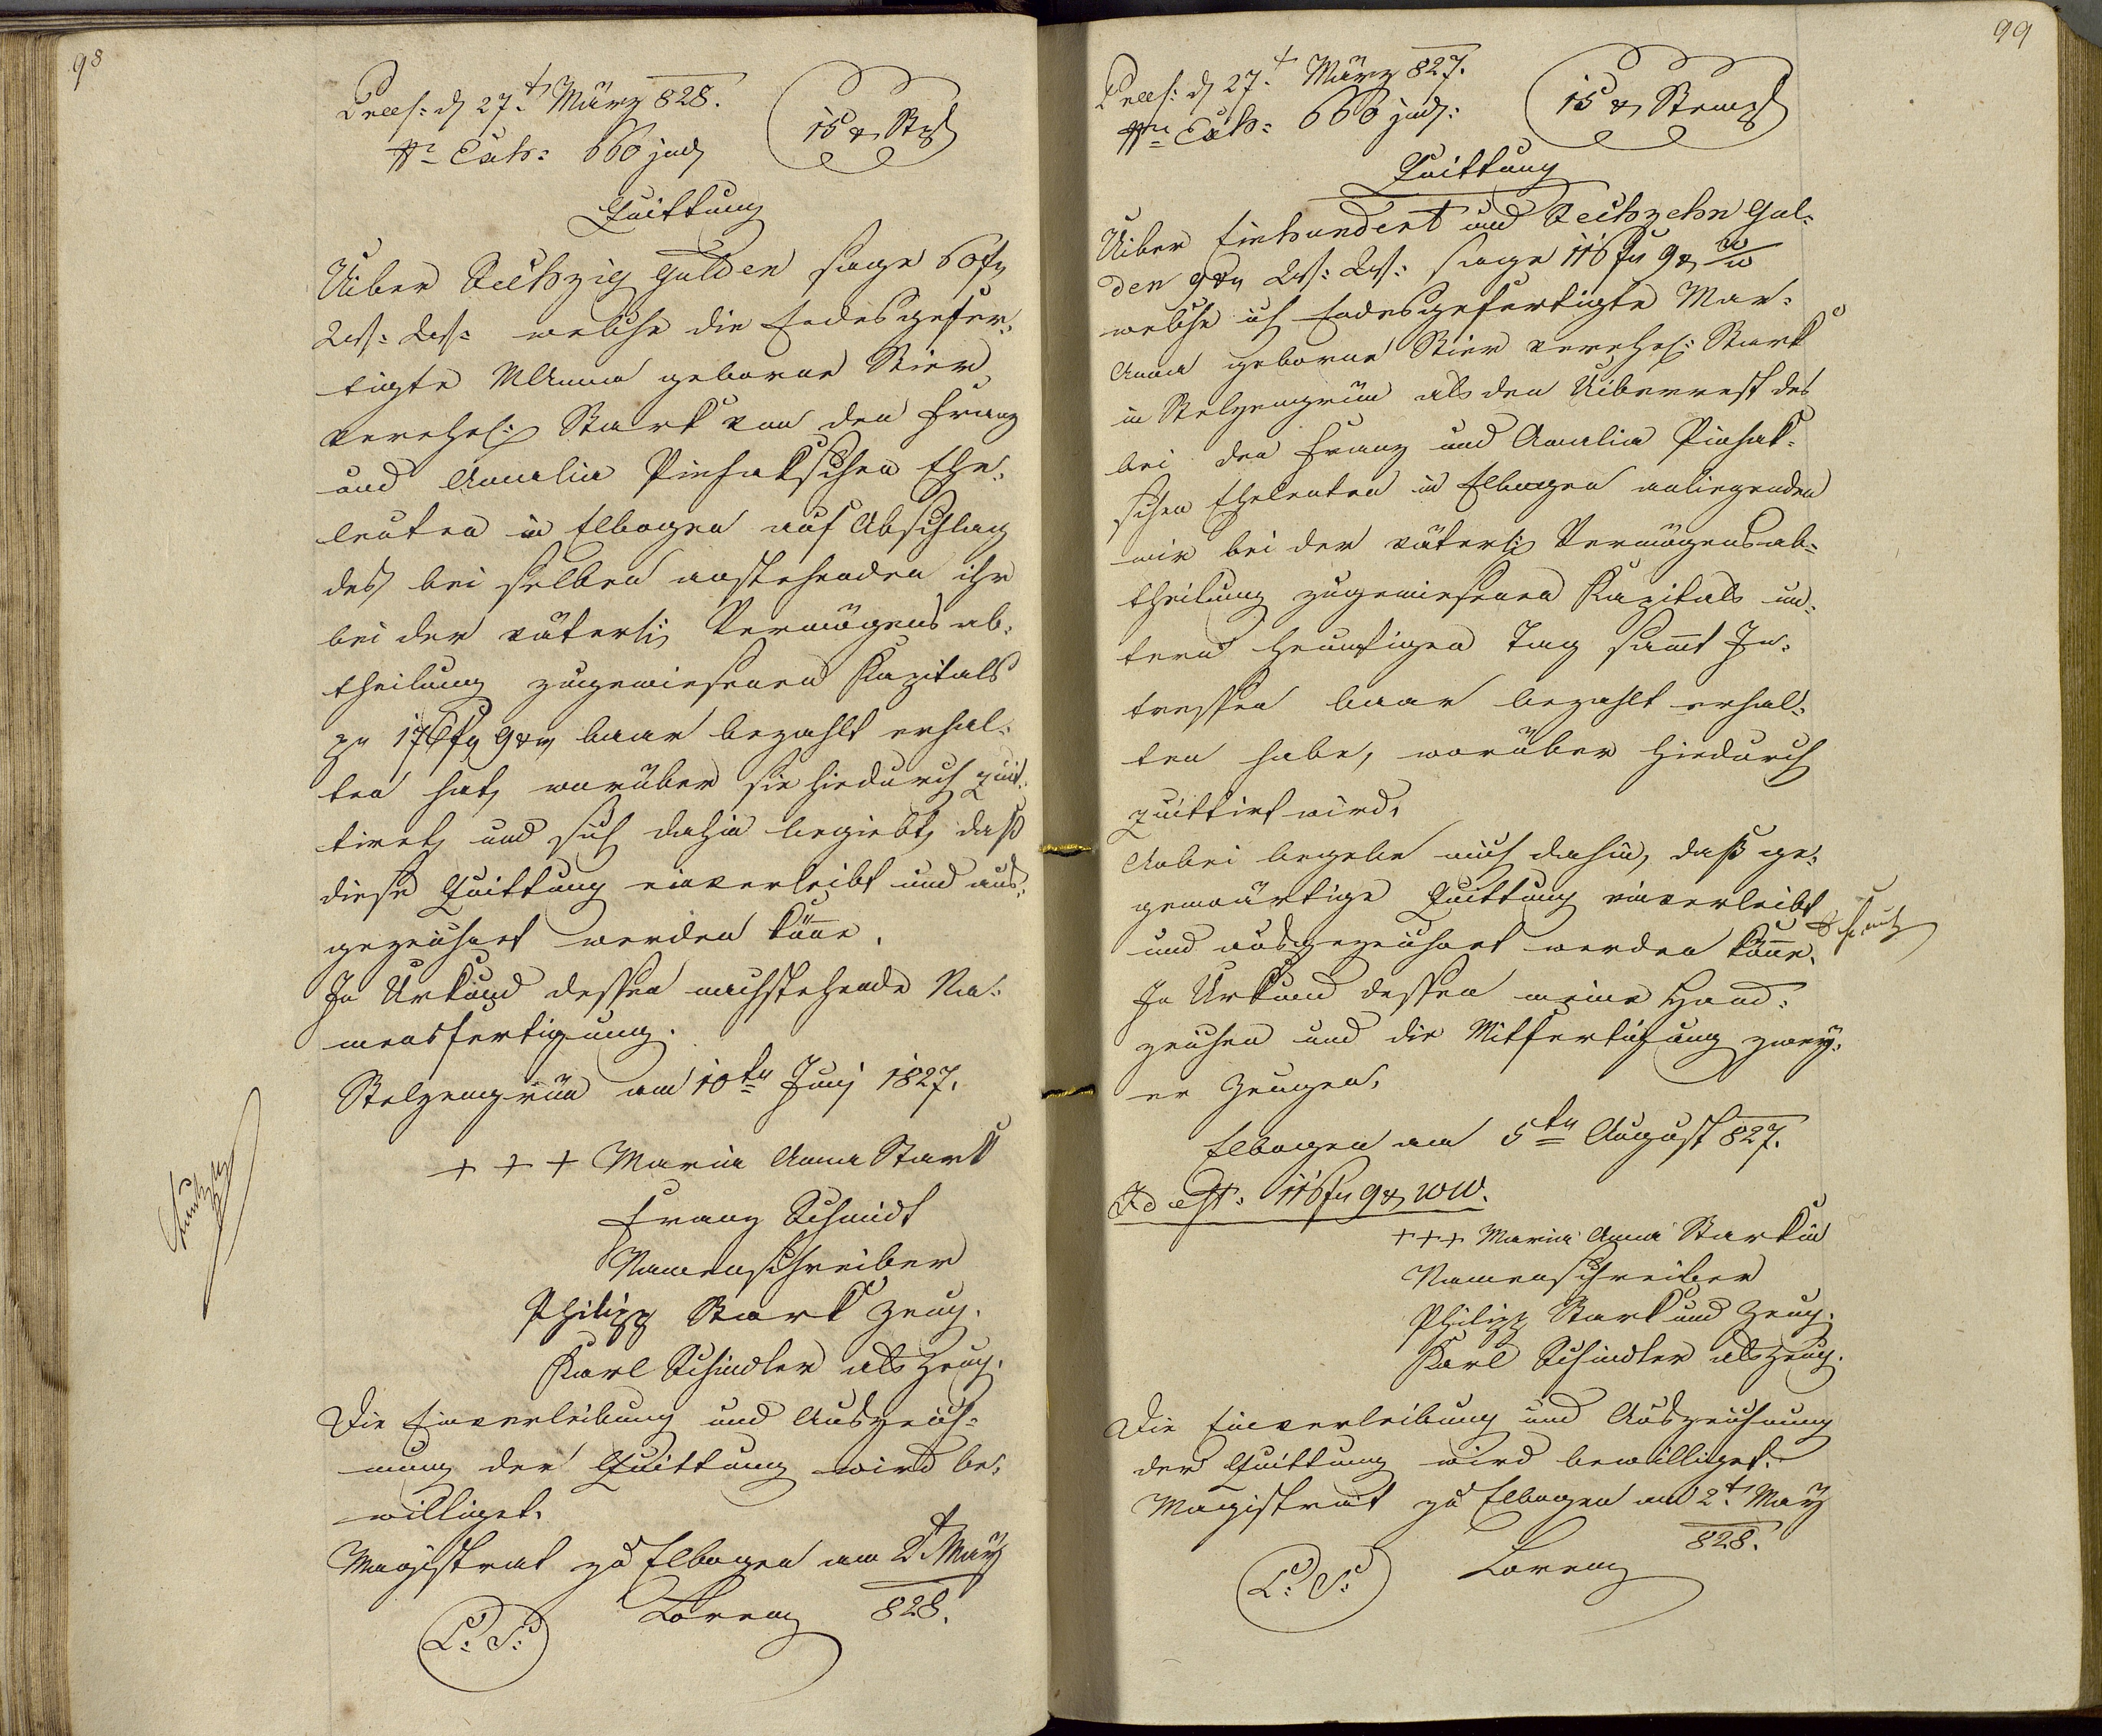 98
Praes: d 27.t März 828.
Nr Exh: 660 jud
15 x Stpl
Quittung
Uiber Sechzig Gulden sage 60 fr
Wst: Wst: welche die Endesgefer-
tigte MAnna geborne Stier
verehel: Stark von den Franz
und Amalia Pinhakschen Ehe-
leuten in Elbogen auf Abschlag
des bei selben anstehenden ihr
bei der väterli Vermögensab-
theilung zugewiesenen Kapitals
zu 176 fr 9 xr baar bezahlt erhal-
ten hat, worüber sie hiedurch quit-
tiret, und sich dahin begiebt, daß
diese Quittung einverleibt und aus-
gezeichnet werden könne.
In Urkund dessen nachstehende Na-
mensfertigung.
Stelzengrün am 10tn Juny 1827.
+ + + Maria Anna Stark
Franz Schmidt
Namenschreiber
Philipp Stark Zeug.
Karl Schindler als Zeug.
Die Einverleibung und Auszeich-
nung der Quittung wird be-
williget.
Magistrat zu Elbogen am 2t May
828.
Lorenz
L: S:
99
Praes: d 27.t März 827.
Nr Exh: 666 jud:
15 x Stempl
Quittung
Uiber Einhundert und Sechzehn Gul-
den 9 xr Wst: Wst: sage 116 fr 9 x W/W
welche ich Endesgefertigte Mar-
Anna geborne Stier verehel: Stark
in Stelzengrün als den Uiberrest des
bei den Franz und Amalia Pinhak-
schen Eheleuten in Elbogen anliegenden
mir bei der väterli Vermögensab-
theilung zugewiesenen Kapitals un-
term heuntigen Tag sammt In-
tressen baar bezahlt erhal-
ten habe, worüber hiedurch
quittirt wird.
Anbei begebe mich dahin, daß ge-
genwärtige Quittung einverleibt
und ausgezeichnet werden könne.
In Urkund dessen meine Hand-
zeichen und die Mitfertigung zwey-
er Zeugen.
Elbogen am 5tn August 827.
Id est: 116 fr 9 x WW.
+++ Maria Anna Starkin
Namenschreiber
Philipp Stark und Zeug.
Karl Schindler als Zeug.
Die Einverleibung und Auszeichnung
der Quittung wird bewilliget.
Magistrat zu Elbogen am 2t May
828.
Lorenz
L: S: